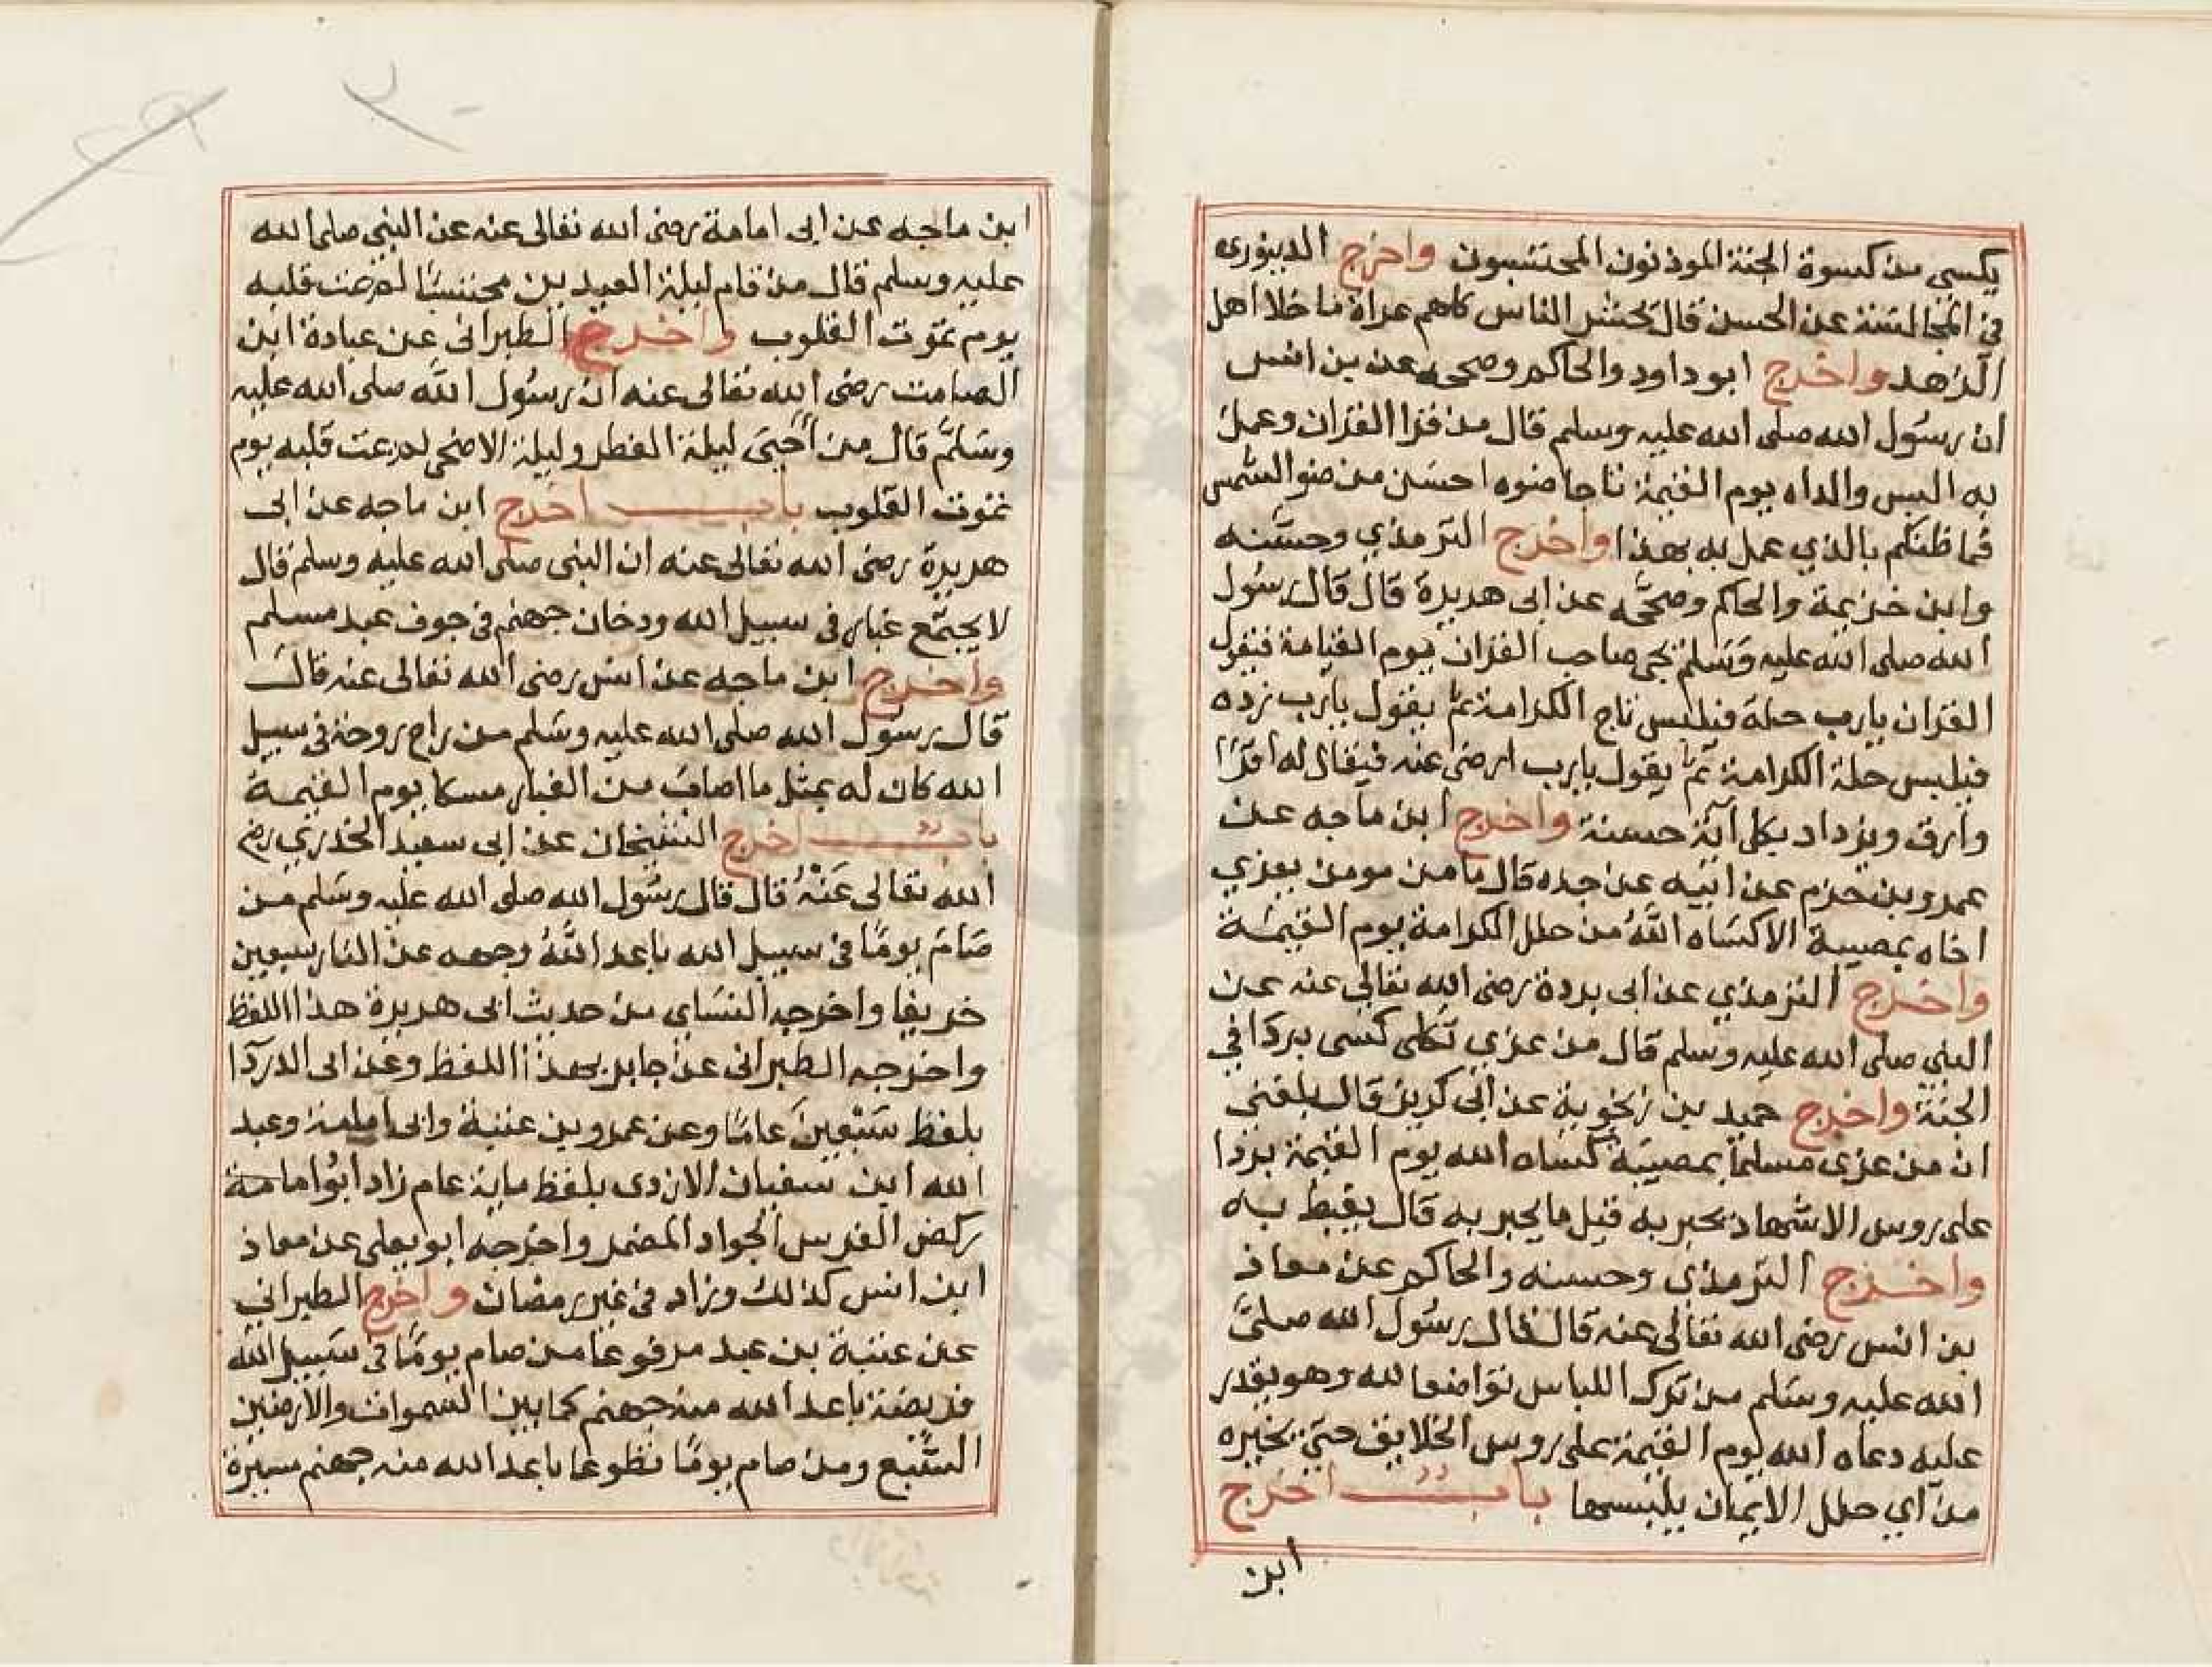 يكسي من كسوة الجنة الموذنون المحتسبون واخرج الدينورى
فى المجالسة عن الحسن قال يحشر الناس كلهم عراة ما خلا اهل
الزهد واخرج ابو داود والحاكم وصححه عن بن انس
ان رسول الله صلى الله عليه وسلم قال من قرا القران وعمل
به البس والداه يوم القيمة تاجا ضوه احسن من ضو الشمس
فما ظنكم بالذي عمل به بهذا واخرج الترمذي وحسنه
وابن خزيمة والحاكم وصححه عن ابى هريرة قال قال رسول
الله صلى الله عليه وسلم يجى صاحب القران يوم القيامة فيقول
القران يارب حلة فيلبس تاج الكرامة ثم يقول يارب زده
فيلبس حلة الكرامة ثم يقول يارب ارضى عنه فيقال له اقرا
وارق ويزداد بكل آية حسنة واخرج ابن ماجه عن
عمرو بن حزم عن ابيه عن جده قال ما من مومن يعزي
اخاه بمصيبة الاكساه الله من حلل الكرامة يوم القيمة
واخرج الترمذي عن ابى بردة رضى الله تعالى عنه عن
النبي صلى الله عليه وسلم قال من عزي ثكلى كسى بردا في
الجنة واخرج حميد بن زنجوية عن ابى كريز قال بلغنى
ان من عزى مسلما بمصيبة كساه الله يوم القيمة بردا
على روس الاشهاد يحبر به قيل ما يحبر به قال يغبط به
واخرج الترمذى وحسنه والحاكم عن معاذ
بن انس رضى الله تعالى عنه قال قال رسول الله صلى
الله عليه وسلم من ترك اللباس تواضعا لله وهو يقدر
عليه دعاه الله يوم القيمة على روس الخلايق حتي يخيره
من آي حلل الايمان يلبسها باب اخرج
ابن
ابن ماجه عن ابى امامة رضى الله تعالى عنه عن النبي صلى الله
عليه وسلم قال من قام ليلة العيد بن محتسبا لم يمت قلبه
يوم تموت القلوب واخرج الطبرانى عن عبادة ابن
الصامت رضى الله تعالى عنه ان رسول الله صلى الله عليه
وسلم قال من أحيى ليلة الفطر وليلة الاضحى لم يمت قلبه يوم
تموت القلوب باب اخرج ابن ماجه عن ابى
هريرة رضى الله تعالى عنه ان النبى صلى الله عليه وسلم قال
لا يجتمع غبار فى سبيل الله ودخان جهنم فى جوف عبد مسلم
واخرج ابن ماجه عن انس رضى الله تعالى عنه قال
قال رسول الله صلى الله عليه وسلم من راح روحة فى سبيل
الله كان له بمثل ما اصاب من الغبار مسكا يوم القيمة
باب اخرج الشيخان عن ابى سعيد الخدري رضى
الله تعالى عنه قال قال رسول الله صلى الله عليه وسلم من
صام يوما فى سبيل الله باعد الله وجهه عن النار سبعين
خريفا واخرجه النساى من حديث ابى هريرة هذا اللفظ
واخرجه الطبرانى عن جابر بهذا اللفظ وعن ابى الدردا
بلفظ سبعين عاما وعن عمرو بن عنبسة وابى امامة وعبد
الله ابن سفيان الازدى بلفظ ماية عام زاد ابو امامة
ركض الفرس الجواد المضمر واخرجه ابو يعلى عن معاذ
ابن انس كذلك وزاد فى غير رمضان واخرج الطبراني
عن عتبة بن عبد مرفوعا من صام يوما فى سبيل الله
فريضة باعد الله منه جهنم كما بين السموات والارضين
السبع ومن صام يوما تطوعا باعد الله منه جهنم مسيرة